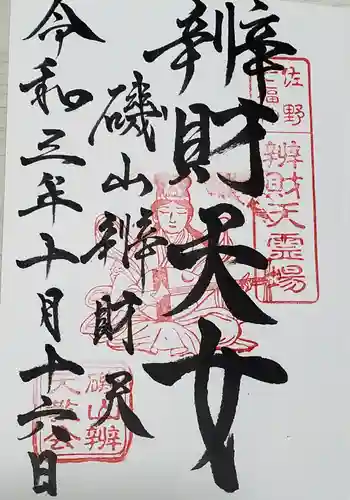 辨財天女
佐野
七福
辨財天霊場
磯山辨財天
令和三年十月十六日
磯山辨